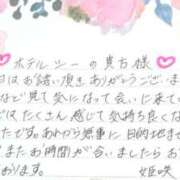 ホテルツーの貴方様♡
日はお誘い頂きありがとうござい
など見て気になって会いに来て
はたくさん感じて気持ち良くな
たです。あわから無事に目的地まで
またお時間が合いましたらお
おります。
姫咲